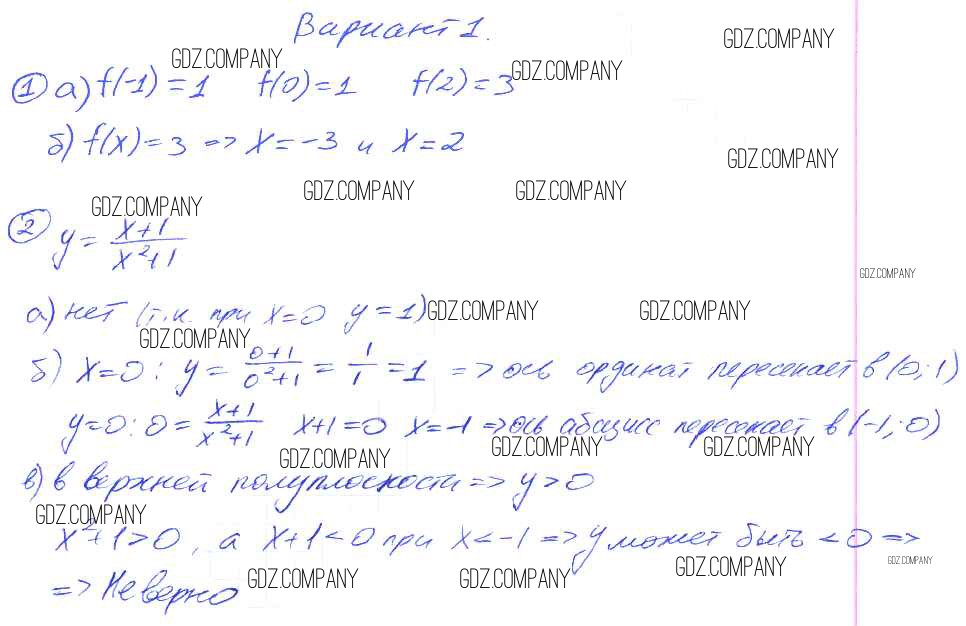 Вариант 1.
GDZ.COMPANY
GDZ.COMPANY
GDZ.COMPANY
① а) f(-1) = 1 f(0) = 1 f(2) = 3
б) f(x) = 3 => x = -3 и x = 2
GDZ.COMPANY
GDZ.COMPANY
GDZ.COMPANY
GDZ.COMPANY
② y = (x+1)/(x²+1)
GDZ.COMPANY
а) нет (т.к. при x=0 y=1)
GDZ.COMPANY
GDZ.COMPANY
GDZ.COMPANY
б) x=0: y = (0+1)/(0²+1) = 1/1 = 1 => ось ординат пересекает в (0; 1)
y=0: 0 = (x+1)/(x²+1) x+1=0 x=-1 => ось абсцисс пересекает в (-1; 0)
GDZ.COMPANY
GDZ.COMPANY
GDZ.COMPANY
в) в верхней полуплоскости => y>0
GDZ.COMPANY
x²+1>0, а x+1<0 при x<-1 => y может быть <0 =>
GDZ.COMPANY
GDZ.COMPANY
GDZ.COMPANY
GDZ.COMPANY
=> Неверно